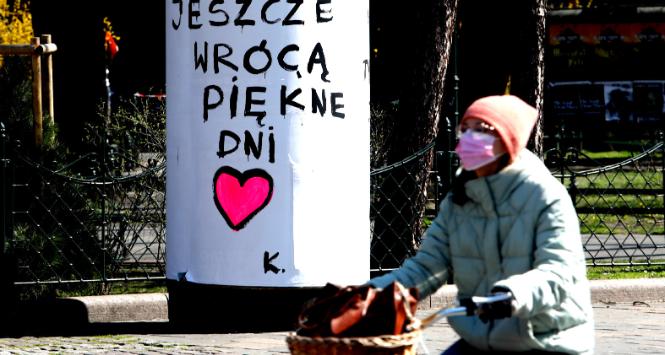 JESZCZE
WRÓCĄ
PIĘKNE
DNI
K.